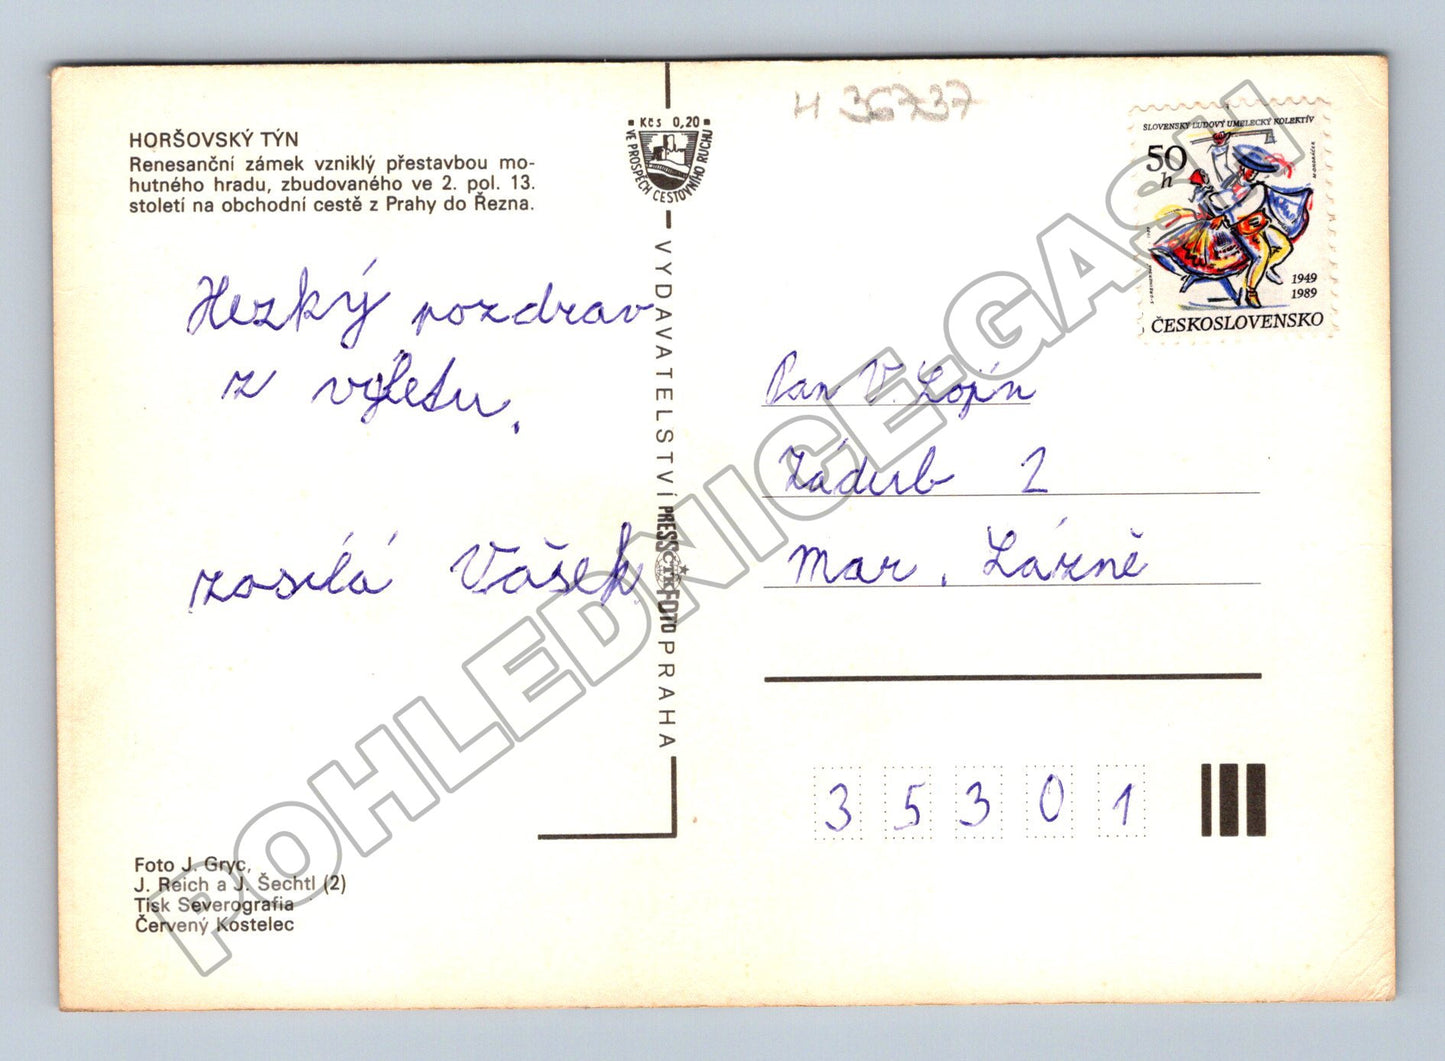 HORŠOVSKÝ TÝN
Renesanční zámek vzniklý přestavbou mo-
hutného hradu, zbudovaného ve 2. pol. 13.
století na obchodní cestě z Prahy do Řezna.
Hezký pozdrav
z výletu.
zasílá Vašek
Foto J. Gryc,
J. Reich a J. Šechtl (2)
Tisk Severografia
Červený Kostelec
Kčs 0,20
VE PROSPĚCH CESTOVNÍHO RUCHU
VYDAVATELSTVÍ PRESSFOTO PRAHA
ČTK
H 36737
SLOVENSKÝ ĽUDOVÝ UMELECKÝ KOLEKTÍV
50
h
M. ONDRÁČEK
1949
1989
ČESKOSLOVENSKO
Pan V. Lopín
Zádub 2
Mar. Lázně
35301
POHLEDNICE-GASH